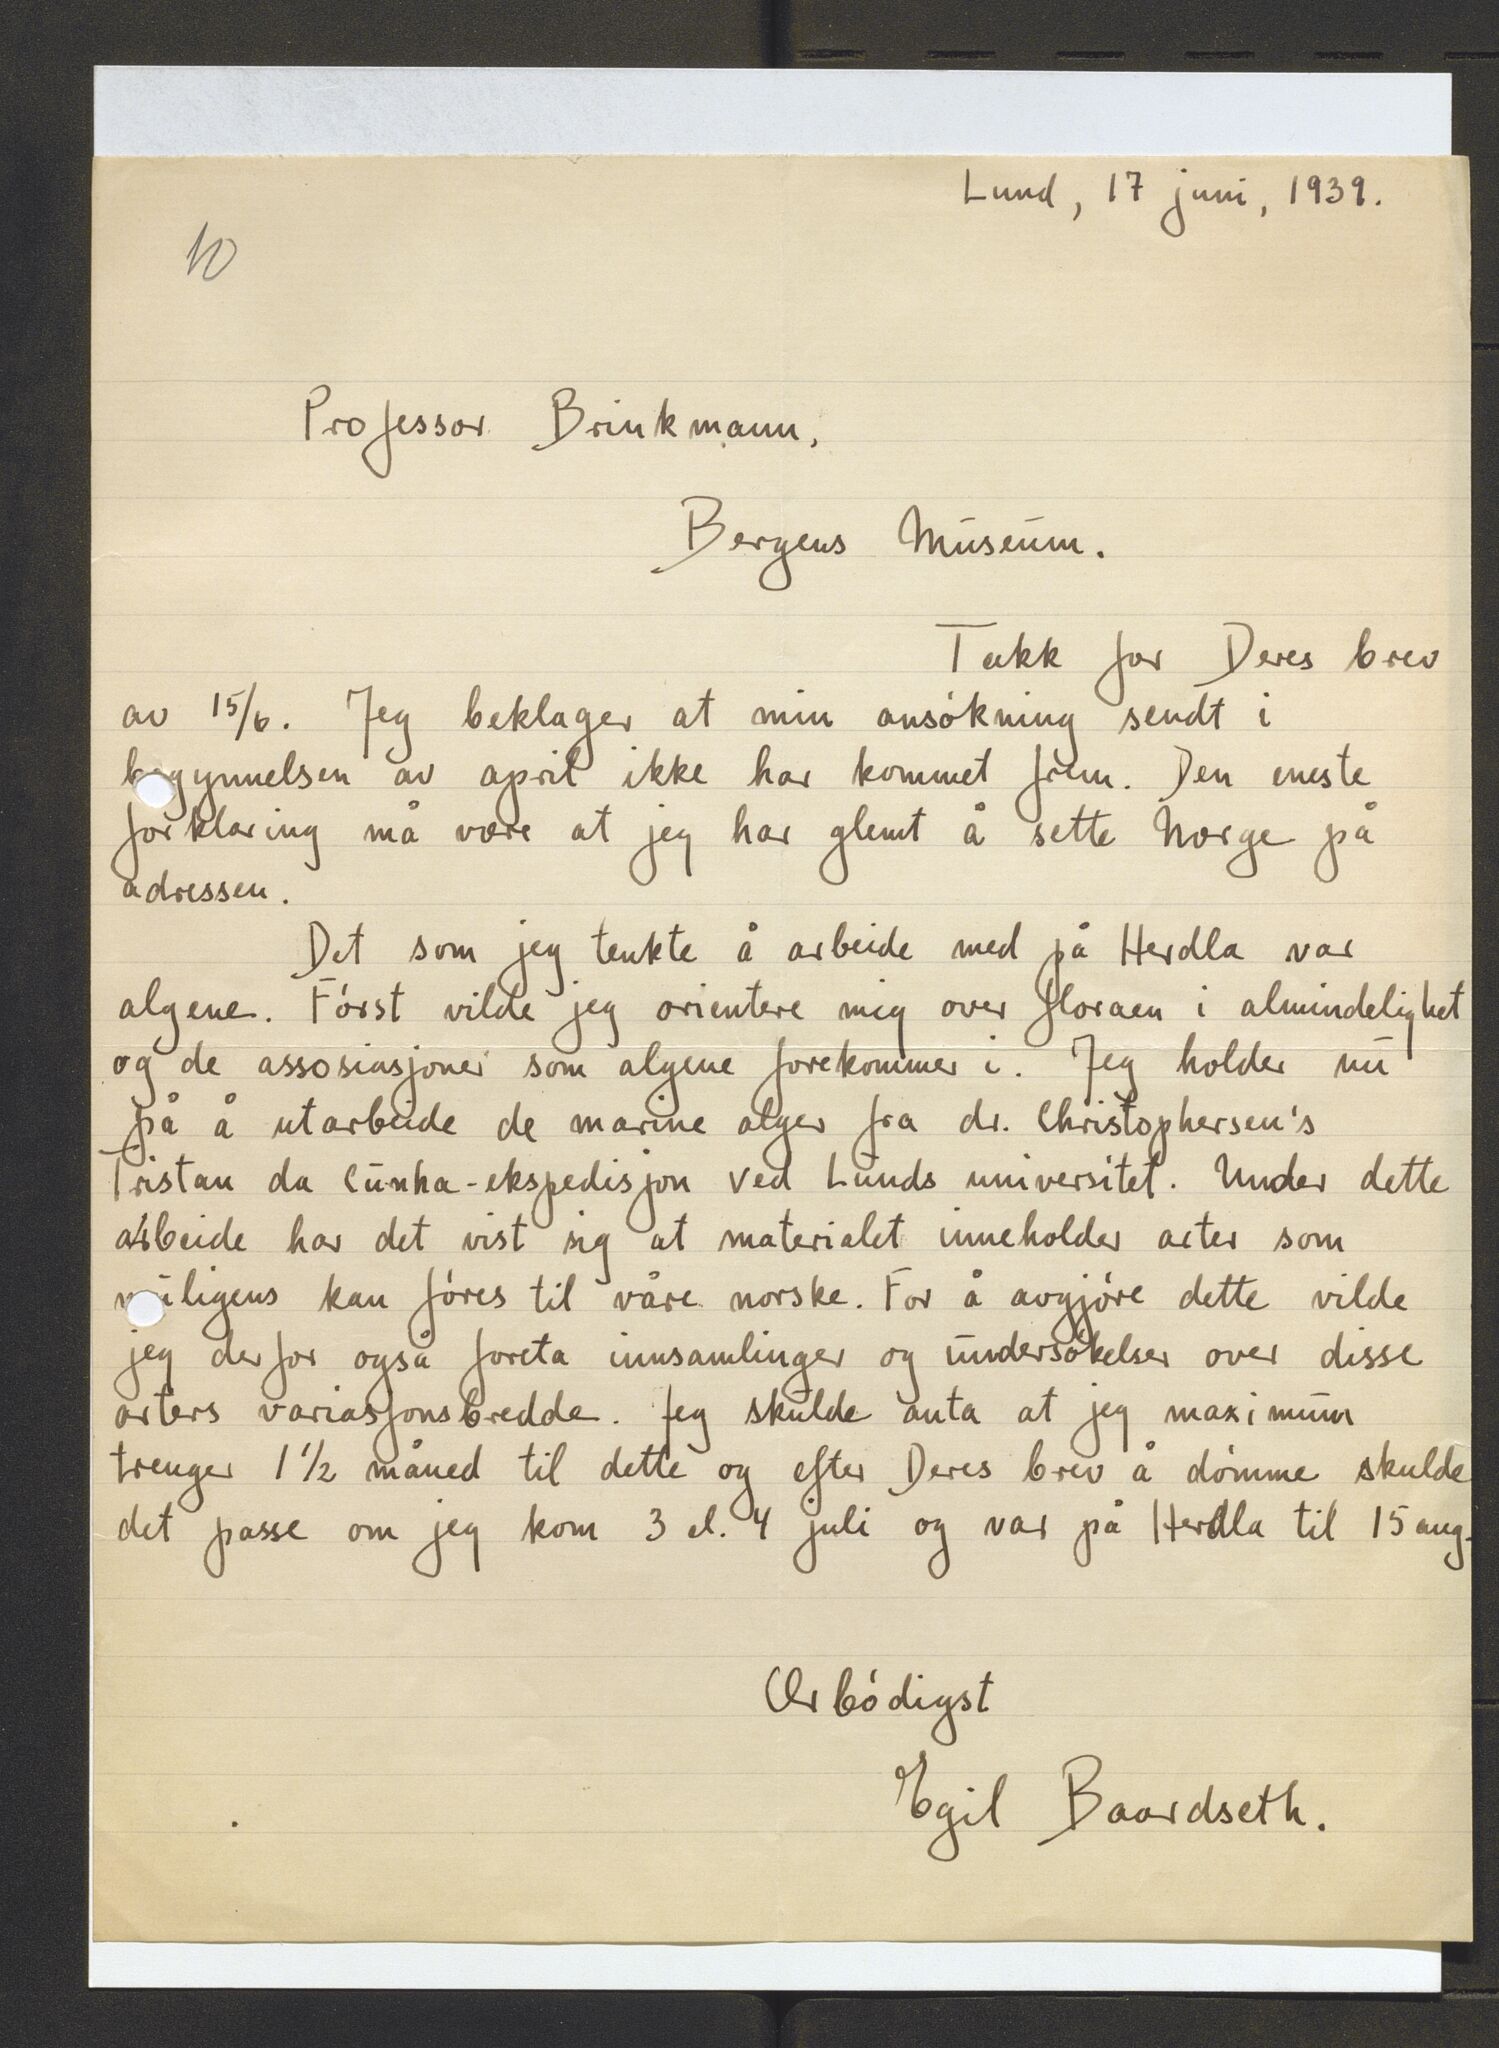 Lund, 17 juni, 1939.
10
Professor Brinkmann,
Bergens Museum.
Takk for Deres brev
av 15/6. Jeg beklager at min ansökning sendt i
begynnelsen av april ikke har kommet frem. Den eneste
forklaring må være at jeg har glemt å sette Norge på
adressen.
Det som jeg tenkte å arbeide med på Herdla var
algene. Först vilde jeg orientere mig over floraen i almindelighet
og de assosiasjoner som algene forekommer i. Jeg holder nu
på å utarbeide de marine alger fra dr. Christophersen's
Tristan da Cunha-ekspedisjon ved Lunds universitet. Under dette
arbeide har det vist sig at materialet inneholder arter som
muligens kan föres til våre norske. For å avgjöre dette vilde
jeg derfor også foreta innsamlinger og undersökelser over disse
arters variasjonsbredde. Jeg skulde anta at jeg maximum
trenger 1 1/2 måned til dette og efter Deres brev å dömme skulde
det passe om jeg kom 3 el. 4 juli og var på Herdla til 15 aug.
Ærbödigst
Egil Baardseth.